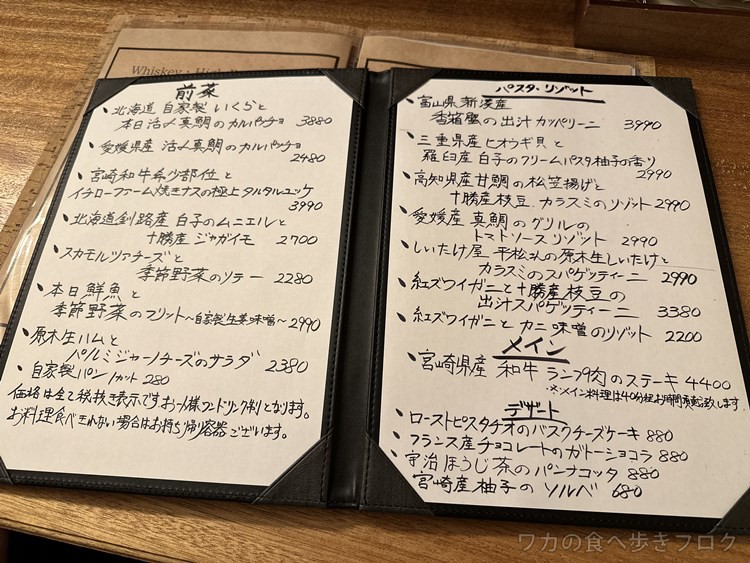 Whiskey
前菜
・北海道 自家製 いくらと
本日活〆真鯛のカルパッチョ 3880
・愛媛県産 活〆真鯛のカルパッチョ
2480
・宮崎和牛希少部位と
イチローファーム焼きナスの極上タルタルユッケ
3990
・北海道釧路産 白子のムニエルと
十勝産 ジャガイモ 2700
・スカモルツァチーズと
季節野菜のソテー 2280
・本日鮮魚と
季節野菜のフリット〜自家製生姜味噌〜2990
・原木生ハムと
パルミジャーノチーズのサラダ 2380
・自家製パン 1カット 280
価格は全て税抜き表示です。お一人様ワンドリンク制となります。
お料理食べきれない場合はお持ち帰り容器ございます。
パスタ・リゾット
・富山県 新湊産
香箱蟹の出汁カッペリーニ 3990
・三重県産ヒオウギ貝と
羅臼産 白子のクリームパスタ柚子の香り
2990
・高知県産甘鯛の松笠揚げと
十勝産枝豆 カラスミのリゾット 2990
・愛媛産 真鯛のグリルの
トマトソースリゾット 2990
・しいたけ屋 平松さんの原木生しいたけと
カラスミのスパゲッティーニ 2990
・紅ズワイガニと十勝産枝豆の
出汁スパゲッティーニ 3380
・紅ズワイガニとカニ味噌のリゾット 2200
メイン
・宮崎県産 和牛 ランプ肉のステーキ 4400
※メイン料理は40分程お時間頂戴致します。
デザート
・ローストピスタチオのバスクチーズケーキ 880
・フランス産チョコレートのガトーショコラ 880
・宇治ほうじ茶のパンナコッタ 880
・宮崎産柚子のソルベ 680
ワカの食べ歩きブログ